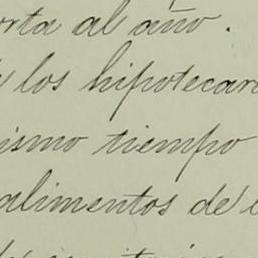 orta al año.
los hipotecar
ismo tiempo
alimentos de